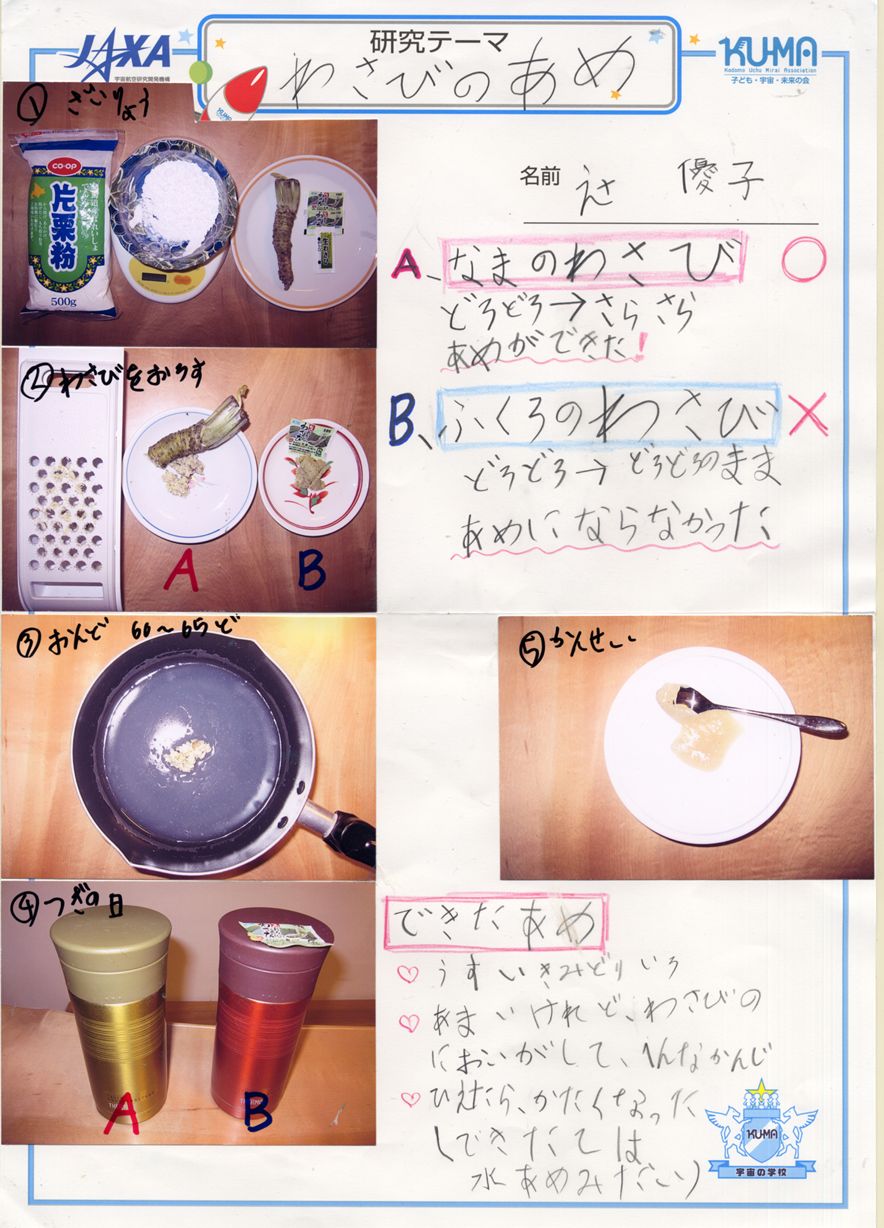 JAXA
宇宙航空研究開発機構
研究テーマ
わさびのあめ
KU-MA
Kodomo Uchu Mirai Association
子ども・宇宙・未来の会
① ざいりょう
CO・OP
片栗粉
500g
名前
優子
A、なまのわさび ○
どろどろ→さらさら
あめができた!
② わさびをおろす
A
B
B、ふくろのわさび ×
どろどろ→どろどろのまま
あめにならなかった
③ おんど 60〜65ど
⑤ かんせい
④ つぎの日
A
B
できたあめ
♡ うすいきみどりいろ
♡ あまいけれど、わさびの
においがして、へんなかんじ
♡ ひえたら、かたくなった
(できたては
水あめみたい)
KU-MA
宇宙の学校